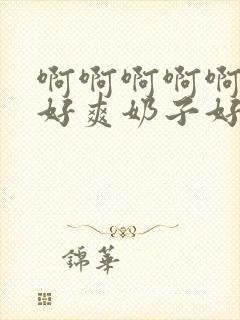 啊啊啊啊啊
好爽奶子好
錦華